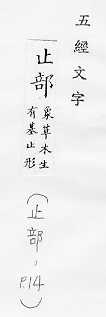 五經文字
止部 象草木生
有基止形
(止部,P.14)